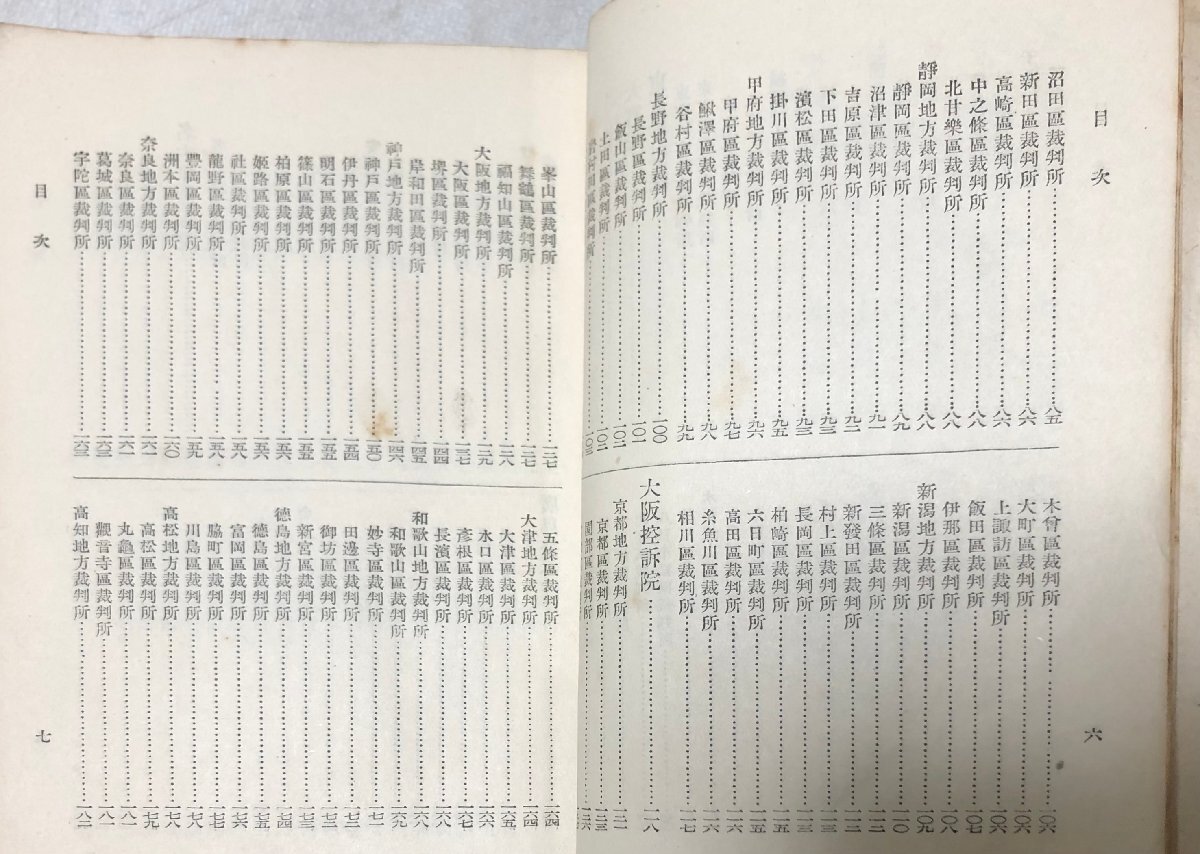 目次
沼田區裁判所……八五
新田區裁判所……八六
高崎區裁判所……八六
中之條區裁判所……八八
北甘樂區裁判所……八八
靜岡地方裁判所……八八
靜岡區裁判所……八九
沼津區裁判所……九一
吉原區裁判所……九二
下田區裁判所……九三
濱松區裁判所……九三
掛川區裁判所……九五
甲府地方裁判所……九六
甲府區裁判所……九七
鰍澤區裁判所……九八
谷村區裁判所……九九
長野地方裁判所……一〇〇
長野區裁判所……一〇一
飯山區裁判所……一〇二
上田區裁判所……一〇二
岩村田區裁判所……一〇三
木曾區裁判所……一〇六
大町區裁判所……一〇六
上諏訪區裁判所……一〇六
飯田區裁判所……一〇七
伊那區裁判所……一〇八
新潟地方裁判所……一〇九
新潟區裁判所……一一〇
三條區裁判所……一一二
新發田區裁判所……一一二
村上區裁判所……一一三
長岡區裁判所……一一三
柏崎區裁判所……一一五
六日町區裁判所……一一五
高田區裁判所……一一六
糸魚川區裁判所……一一六
相川區裁判所……一一七
大阪控訴院……一一八
京都地方裁判所……一二一
京都區裁判所……一二三
園部區裁判所……一二六
六
峯山區裁判所……一二七
舞鶴區裁判所……一二七
福知山區裁判所……一二八
大阪地方裁判所……一二九
大阪區裁判所……一三七
堺區裁判所……一四四
岸和田區裁判所……一四五
神戶地方裁判所……一四六
神戶區裁判所……一五〇
伊丹區裁判所……一五四
明石區裁判所……一五五
篠山區裁判所……一五五
柏原區裁判所……一五六
姬路區裁判所……一五六
社區裁判所……一五八
龍野區裁判所……一五九
豐岡區裁判所……一五九
洲本區裁判所……一六〇
奈良地方裁判所……一六一
奈良區裁判所……一六一
葛城區裁判所……一六三
宇陀區裁判所……一六三
目次
五條區裁判所……一六四
大津地方裁判所……一六四
大津區裁判所……一六五
水口區裁判所……一六六
彥根區裁判所……一六六
長濱區裁判所……一六七
和歌山地方裁判所……一六八
和歌山區裁判所……一六九
妙寺區裁判所……一七一
田邊區裁判所……一七二
御坊區裁判所……一七三
新宮區裁判所……一七三
德島地方裁判所……一七四
德島區裁判所……一七五
富岡區裁判所……一七六
脇町區裁判所……一七七
川島區裁判所……一七八
高松地方裁判所……一七八
高松區裁判所……一七九
丸龜區裁判所……一八一
觀音寺區裁判所……一八一
高知地方裁判所……一八二
七